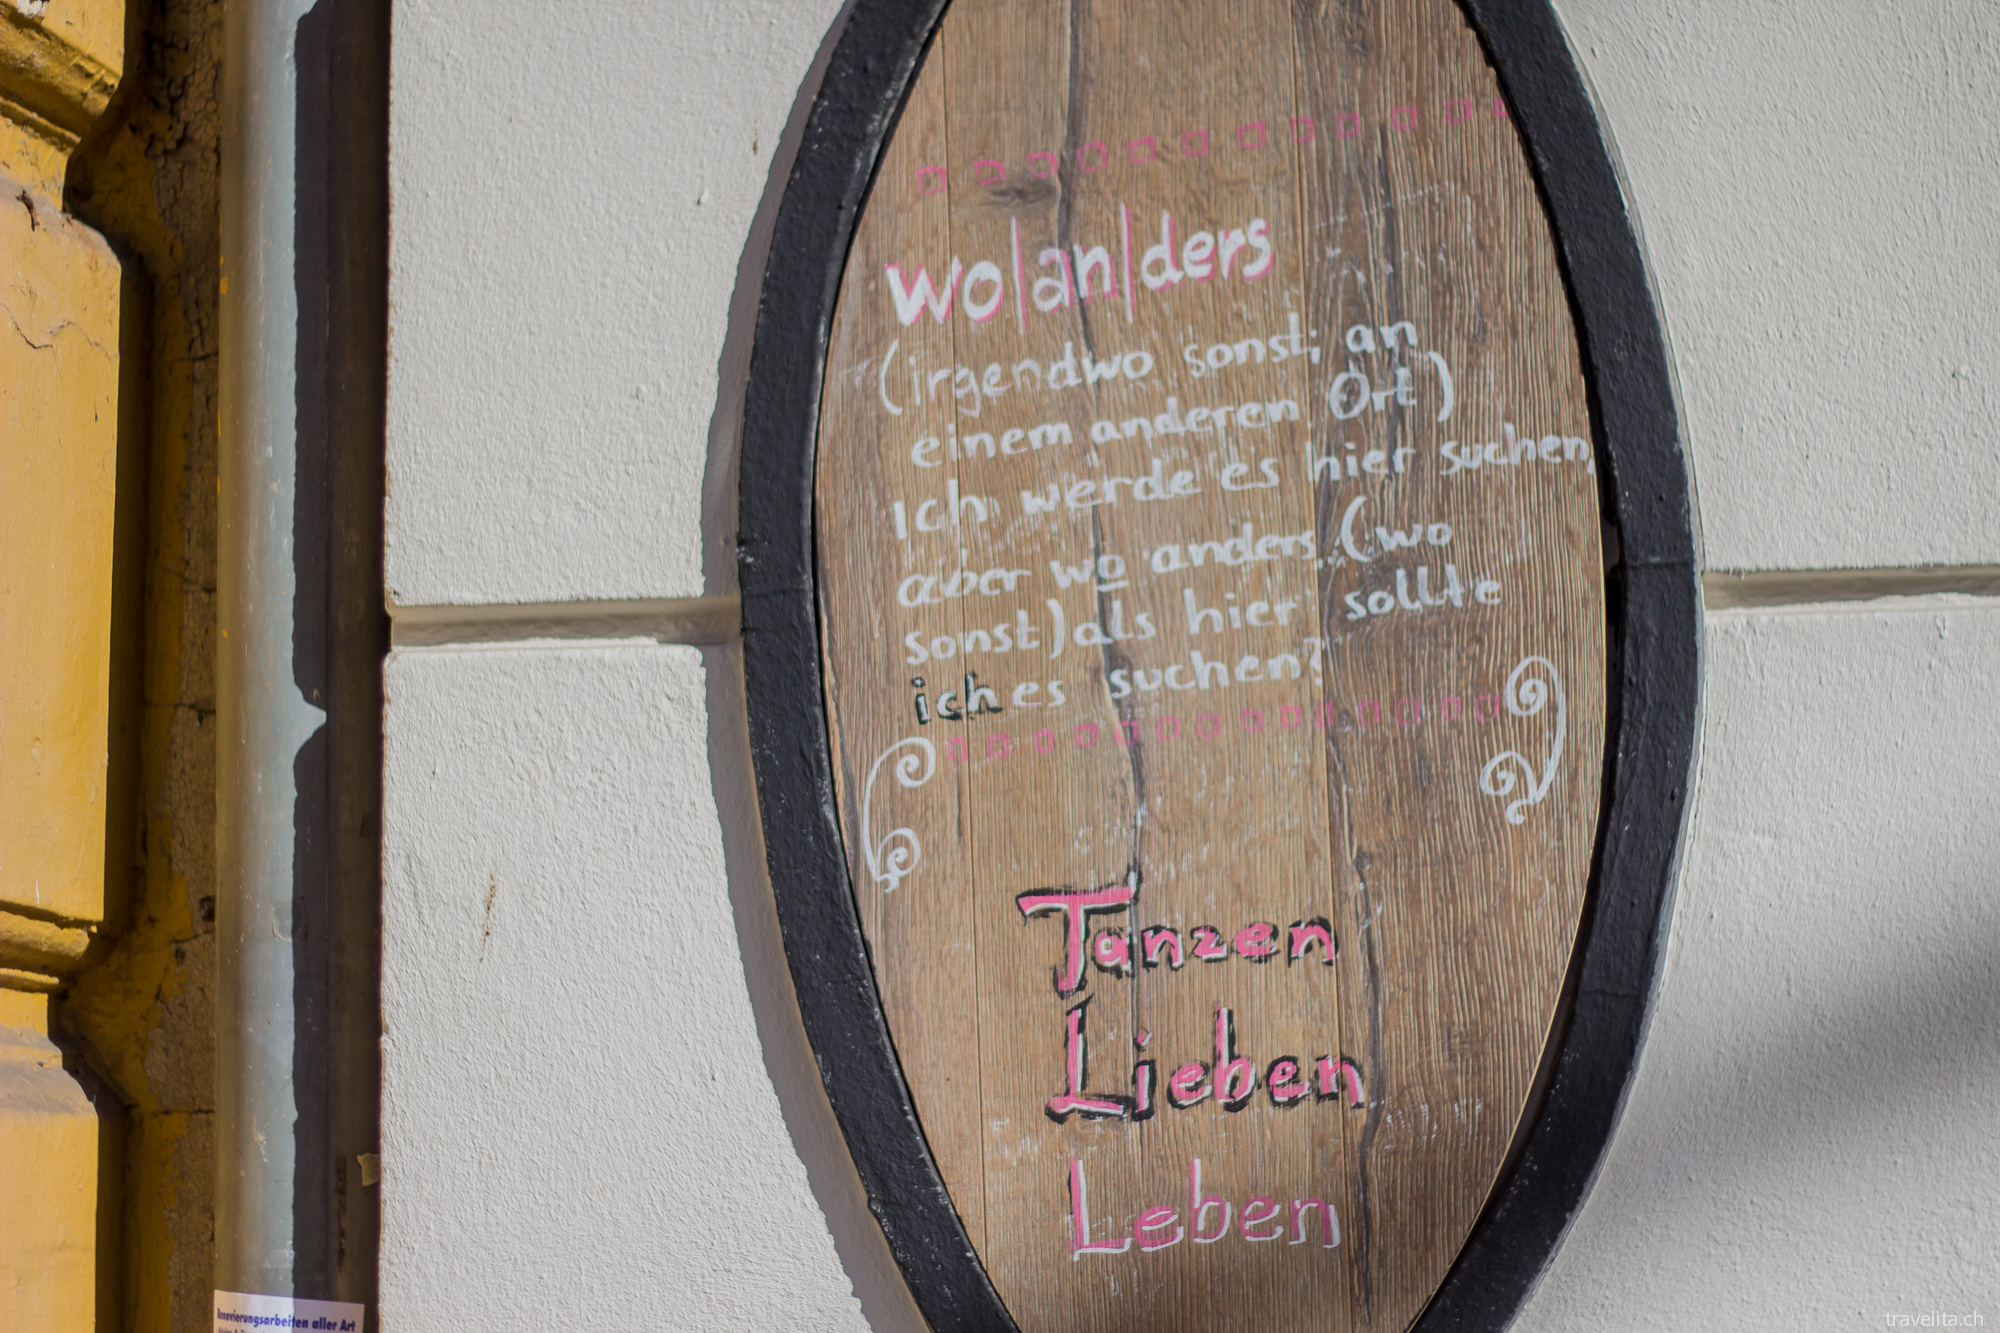 wo|an|ders
(irgendwo sonst; an
einem anderen Ort)
Ich werde es hier suchen,
aber wo anders (wo
sonst) als hier sollte
ich es suchen?
Tanzen
Lieben
Leben
Renovierungsarbeiten aller Art
travelita.ch